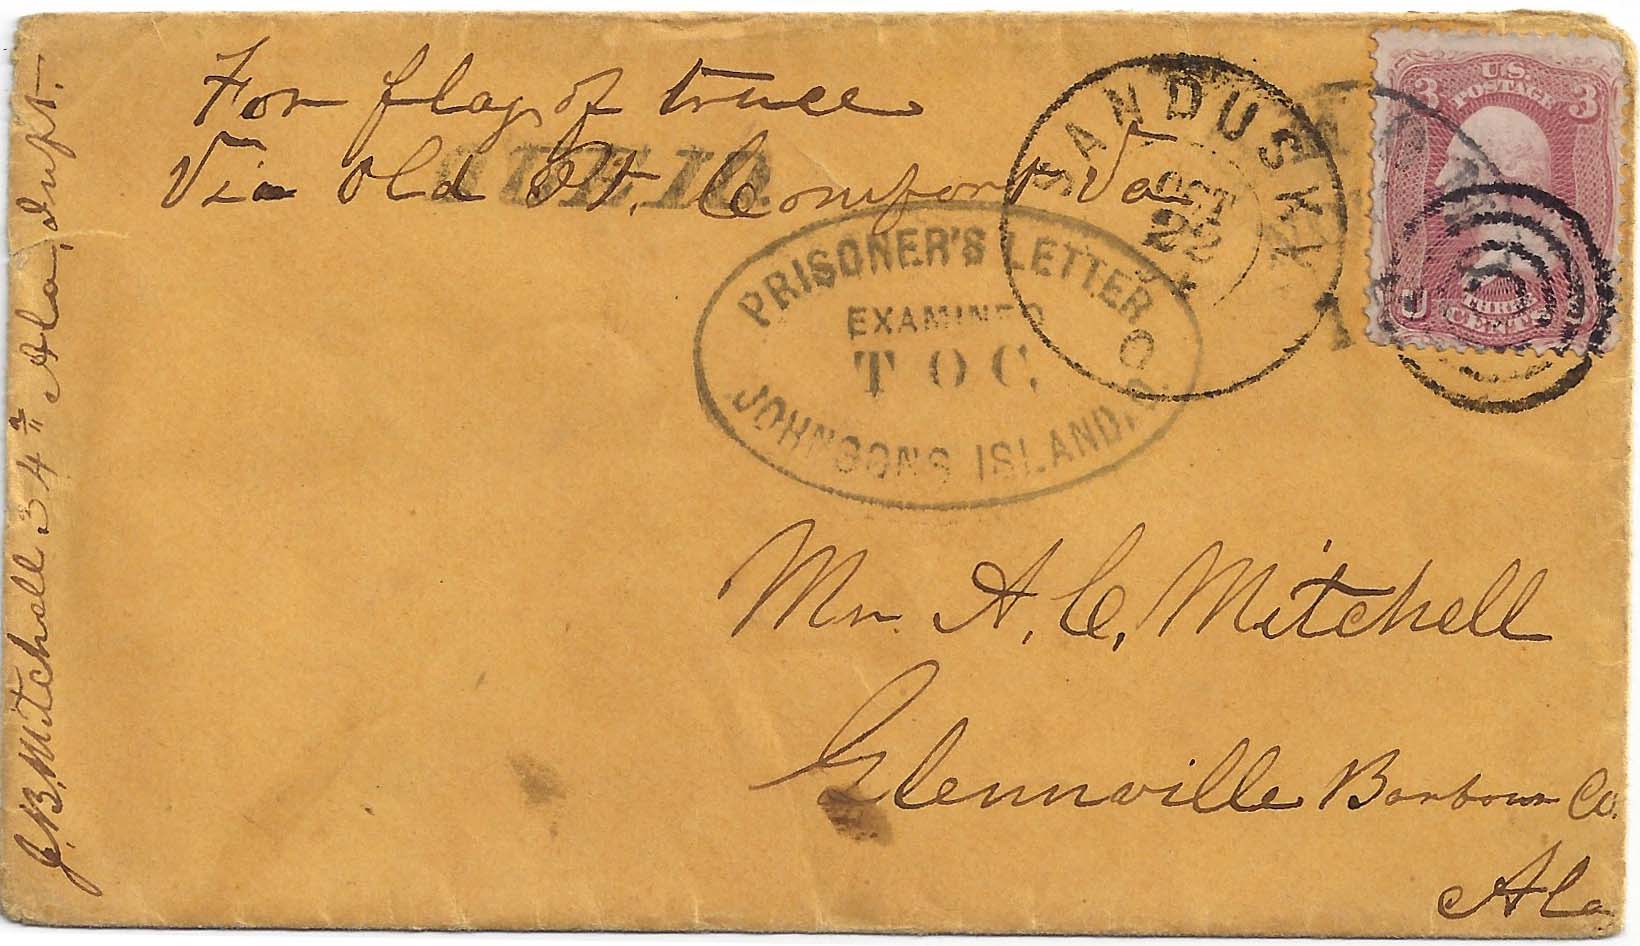 For flag of truce
Via Old Pt. Comfort Va
SANDUSKY
OCT
22
U.S.
POSTAGE
3 3
THREE
CENTS
U
PRISONER'S LETTER
EXAMINED
T O C
JOHNSONS ISLAND, O.
Mr. A. C. Mitchell
Glennville Barbour Co.
Ala
J. B. Mitchell 34th Ala, Inft.